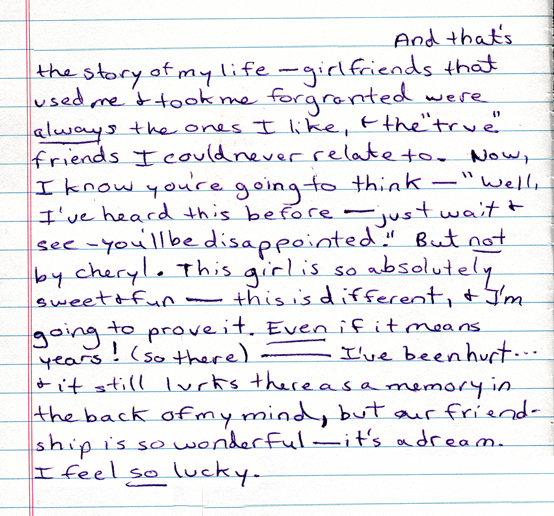 And that's
the story of my life — girlfriends that
used me & took me forgranted were
always the ones I like, & the "true"
friends I could never relate to. Now,
I know you're going to think — "Well,
I've heard this before — just wait &
see - you'll be disappointed." But not
by cheryl. This girl is so absolutely
sweet & fun — this is different, & I'm
going to prove it. Even if it means
years! (so there) —— I've been hurt...
& it still lurks there as a memory in
the back of my mind, but our friend-
ship is so wonderful — it's a dream.
I feel so lucky.